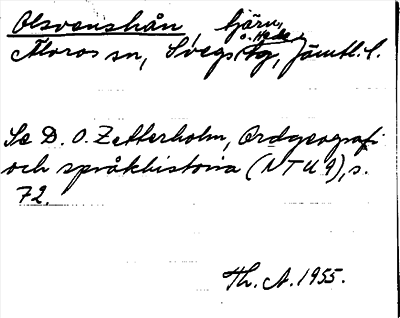 Olsvenshån, tjärn,
Älvros sn, Svegs o. Hede tg, Jämtl. l.
Se D. O. Zetterholm, Ordgeografi
och språkhistoria (NTU 9), s.
72.
Th. A. 1955.